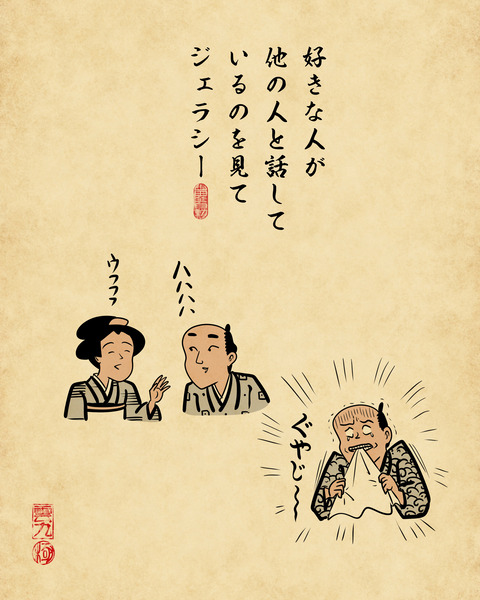 好きな人が
他の人と話して
いるのを見て
ジェラシー
ウフフフ
ハハハハ
ぐやじ〜〜